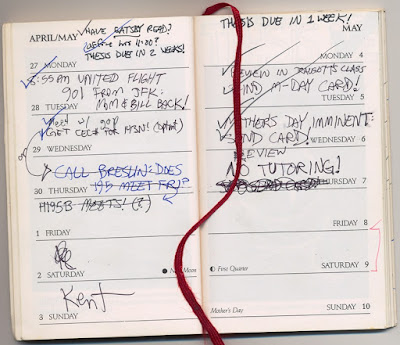 APRIL/MAY
HAVE GATSBY READ?
BEFORE hrs 11:30?
THESIS DUE IN 2 WEEKS!
27 MONDAY
8:55 AM UNITED FLIGHT
901 FROM JFK:
28 TUESDAY MOM & BILL BACK!
MEET W/
GET FOR
29 WEDNESDAY
CALL BRESLIN: DOES
30 THURSDAY 195 MEET FRI?
H195B MEETS! (?)
1 FRIDAY
2 SATURDAY New Moon
Kent
3 SUNDAY
THESIS DUE IN 1 WEEK!
MAY
MONDAY 4
REVIEW IN CLASS
SEND M-DAY CARD!
TUESDAY 5
MOTHER'S DAY IMMINENT:
SEND CARD! WEDNESDAY 6
REVIEW
NO TUTORING!
THURSDAY 7
FRIDAY 8
First Quarter SATURDAY 9
Mother's Day SUNDAY 10